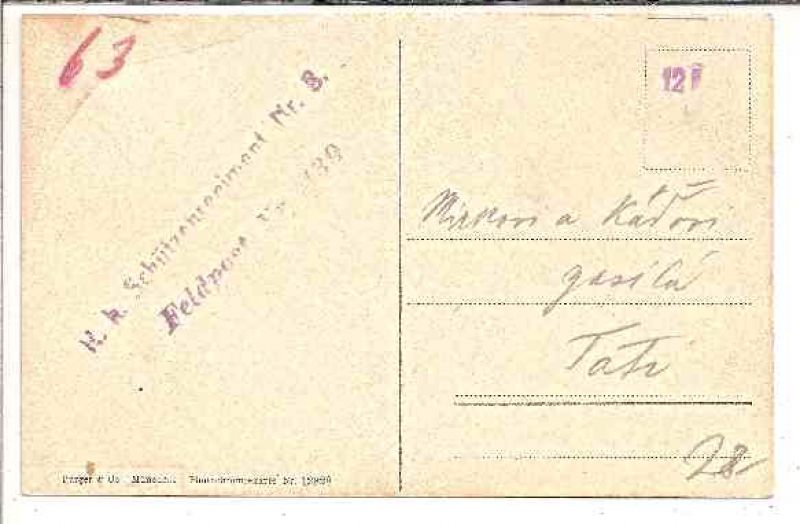 63
K. k. Schützenregiment Nr. 8.
Feldpost Nr. 339
12 F
Mirkovi a Káďovi
zasílá
Táti
28
Purger & Co. München Photochromiekarte Nr.